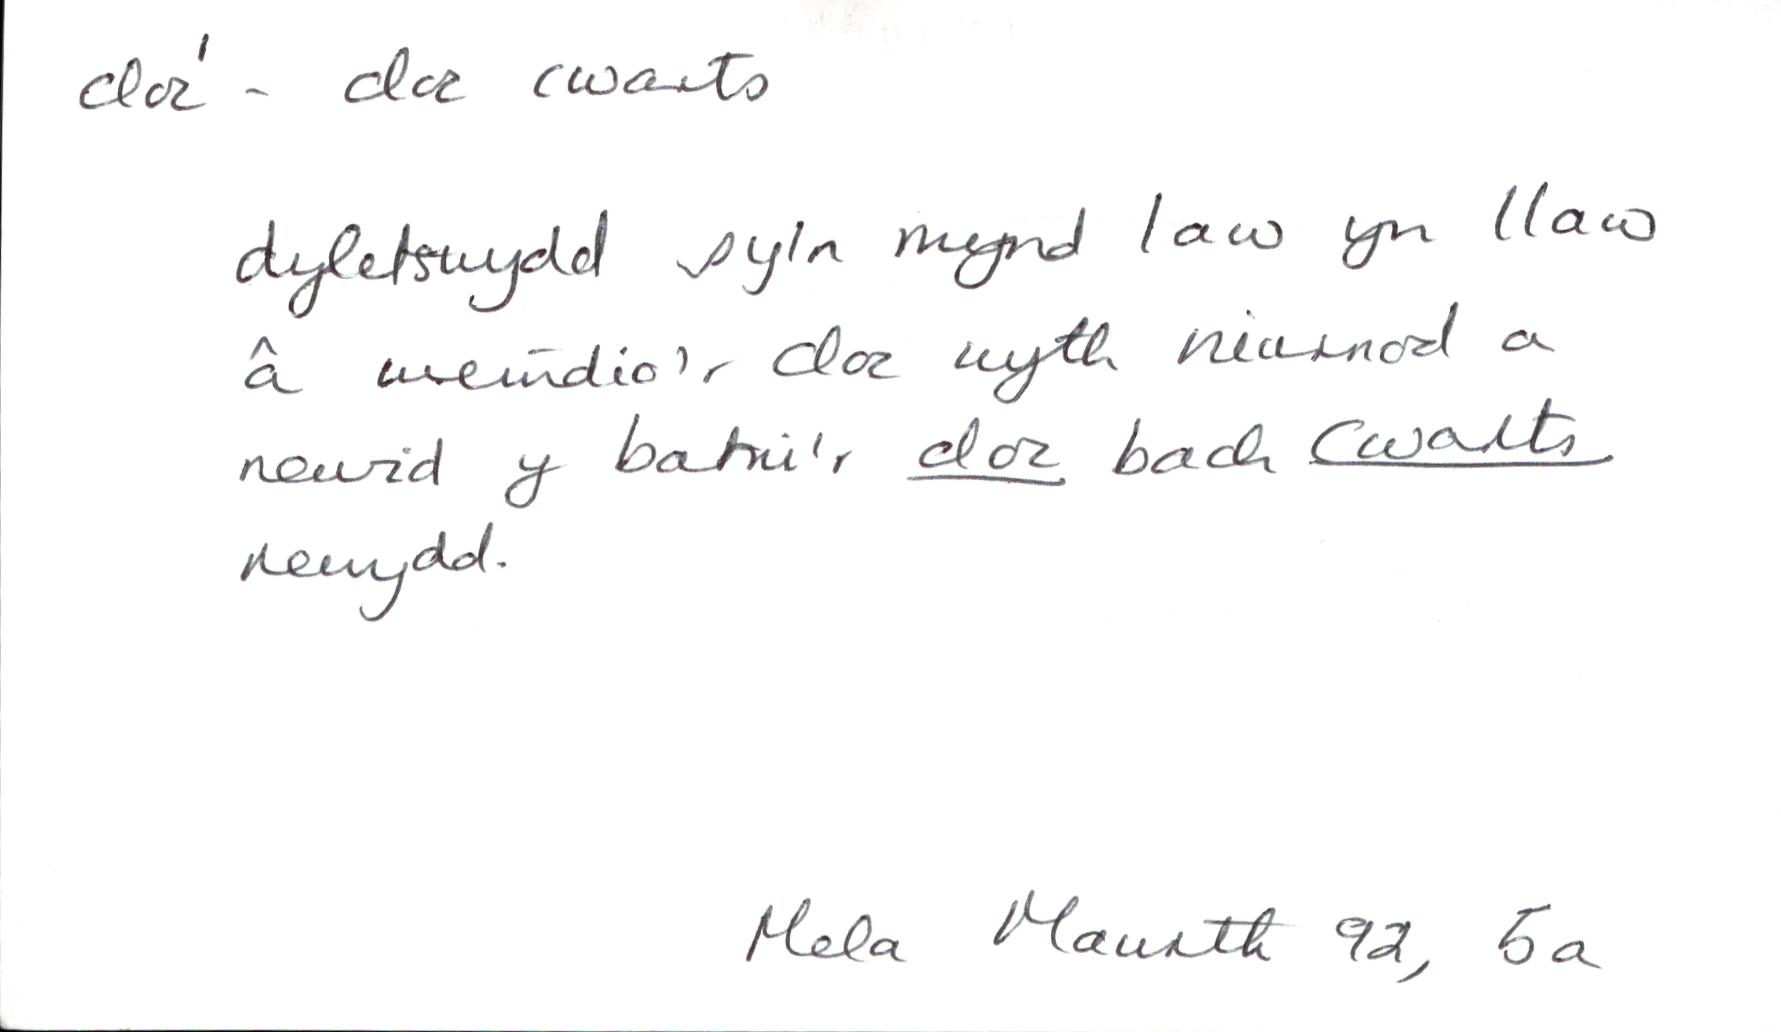 cloc¹ - cloc cwarts
dyletswydd sy'n mynd law yn llaw
â weindio'r cloc wyth niwrnod a
newid y batri'r cloc bach cwarts
newydd.
Mela Mawrth 92, 5a